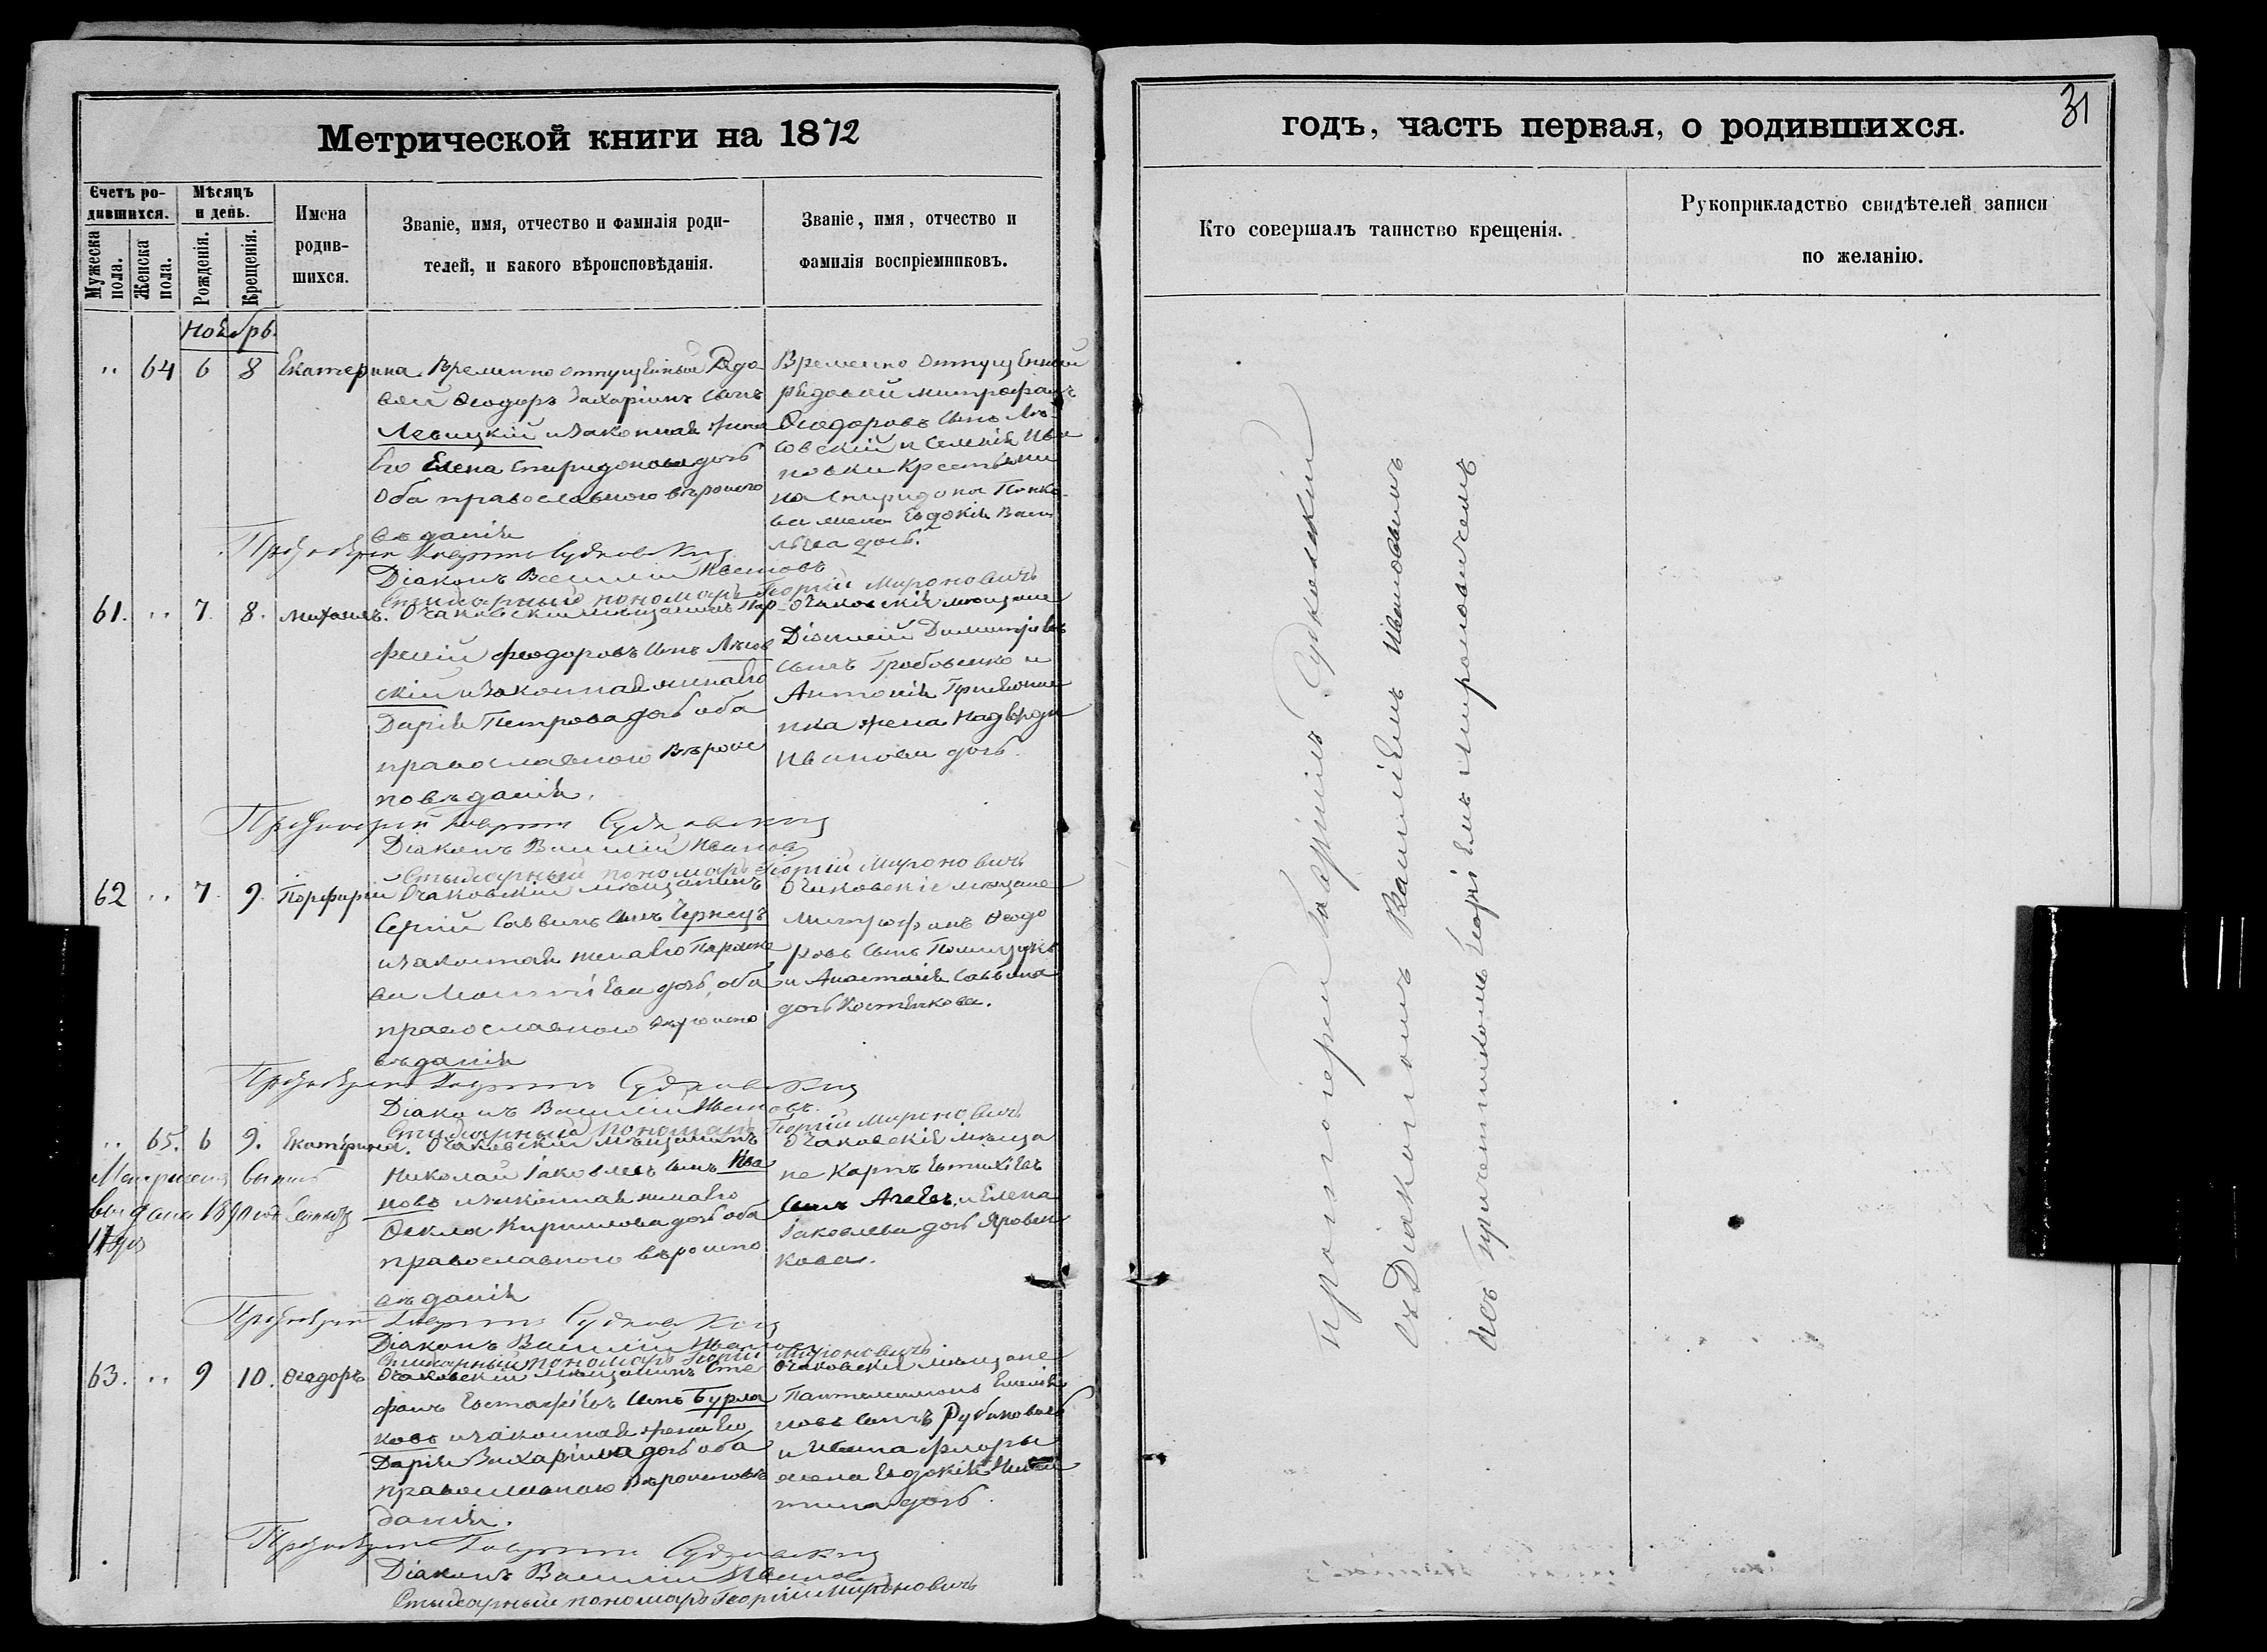 Метрической книги на 1872
Счетъ ро-
дившихся.
Мужеска пола.
Женска пола.
Мѣсяцъ
и день.
Рожденія.
Крещенія.
Имена
родив-
шихся.
Званіе, имя, отчество и фамилія роди-
телей, и какого вѣроисповѣданія.
Званіе, имя, отчество и
фамилія воспріемниковъ.
Ноябрь.
" 64 6 8 Екатерина.
Временно отпущенный Рядо
вой Ѳеодоръ Захаріинъ сынъ
Левицкій и законная жена
Его Елена Спиридонова дочь
оба православного вѣроиспо
вѣданія
Временно отпущенный
рядовой Митрофанъ
Ѳеодоровъ сынъ Лѣ-
совскій и селенія Ива
новки Крестьяни
на Спиридона
жена Евдокія Васи
льева дочь.
Протоіерей Гавріилъ Судковскій
Діаконъ Василій Ивановъ
Стихарный пономарь Георгій Мироновичъ
61. " 7. 8. Михаилъ.
Очаковскій мѣщанинъ Пар-
феній Феодоровъ сынъ Лѣсов
скій и законная жена его
Дарія Петрова дочь оба
православного вѣроис
повѣданія.
Очаковскіе мѣщане
Діонисій Димитріевъ
сынъ Грабовенко и
Антонія
жена
Иванова дочь.
Протоіерей Гавріилъ Судковскій
Діаконъ Василій Ивановъ
Стихарный пономарь Георгій Мироновичъ
62 " 7. 9. Порфирій
Очаковскій мѣщанинъ
Сергій Саввинъ сынъ Чернецъ
и законная жена его Параске
ва Моисеева дочь, оба
православного вѣроиспо
вѣданія
Очаковскіе мѣщане
Митрофанъ Ѳеодо
ровъ сынъ
и Анастасія Саввина
дочь Костенкова.
Протоіерей Гавріилъ Судковскій
Діаконъ Василій Ивановъ.
Стихарный пономарь Георгій Мироновичъ
" 65. 6 9. Екатерина.
Очаковскій мѣщанинъ
Николай Іаковлевъ сынъ Ива
новъ и законная жена его
Ѳекла Кириллова дочь оба
православного вѣроиспо
вѣданія
Очаковскіе мѣща
не Карпъ Евтихіевъ
сынъ Агеевъ, и Елена
Іаковлева дочь Яровен
кова.
выдана
Протоіерей Гавріилъ Судковскій
Діаконъ Василій Ивановъ
Стихарный пономарь Георгій Мироновичъ
63. " 9 10. Ѳеодоръ
Очаковскій мѣщанинъ Сте
фанъ Евстафіевъ сынъ Бурла
ковъ и законная жена его
Дарія Захаріина дочь оба
православного вѣроисповѣ
данія.
Очаковскіе мѣщане
Пантелеимонъ Емелія
новъ сынъ
и
жена Евдокія Ники
тина дочь.
Протоіерей Гавріилъ Судковскій
Діаконъ Василій Ивановъ
Стихарный пономарь Георгій Мироновичъ
31
годъ, часть первая, о родившихся.
Кто совершалъ таинство крещенія.
Рукоприкладство свидѣтелей записи
по желанію.
Протоіерей Гавріилъ Судковскій
съ Діакономъ Василіемъ Ивановымъ
и съ причетникомъ Георгіемъ Мироновичемъ